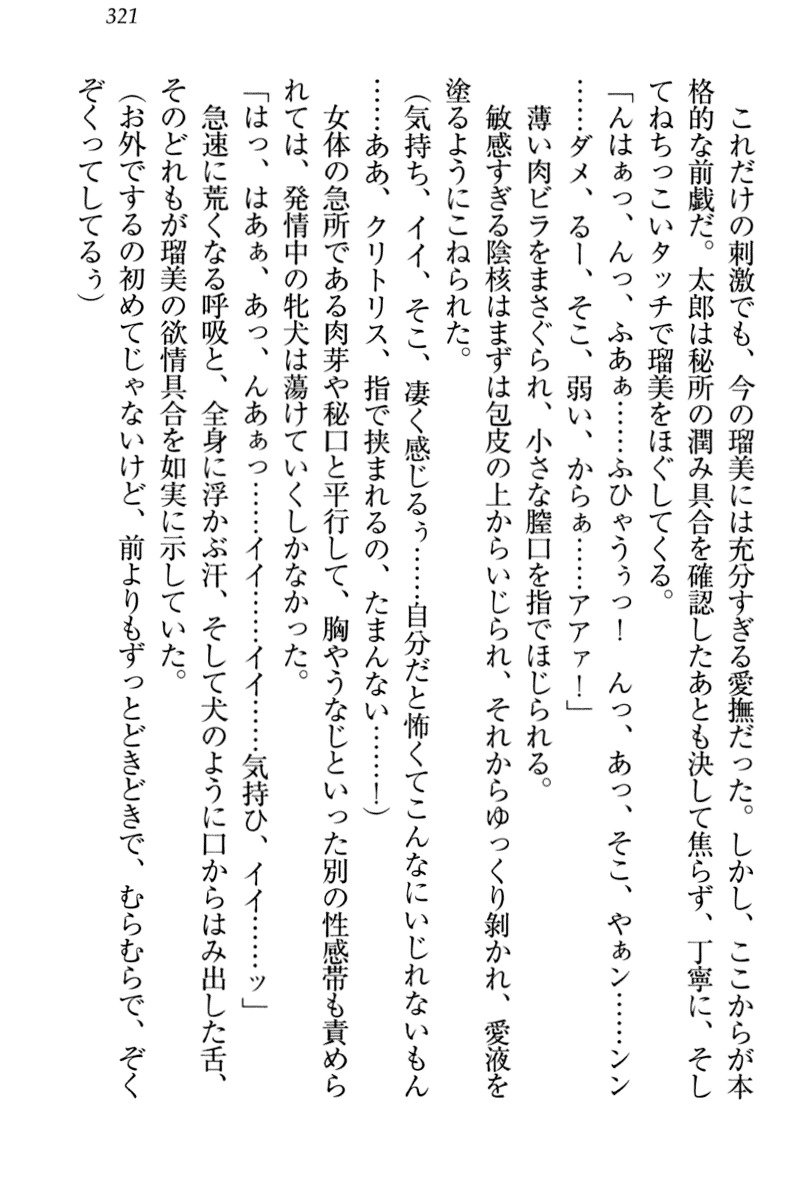 321
　これだけの刺激でも、今の瑠美には充分すぎる愛撫だった。しかし、ここからが本
格的な前戯だ。太郎は秘所の潤み具合を確認したあとも決して焦らず、丁寧に、そし
てねちっこいタッチで瑠美をほぐしてくる。
「んはぁっ、んっ、ふあぁ……ふひゃうぅっ！　んっ、あっ、そこ、やぁン……ンン
……ダメ、るー、そこ、弱い、からぁ……アアァ！」
　薄い肉ビラをまさぐられ、小さな膣口を指でほじられる。
　敏感すぎる陰核はまずは包皮の上からいじられ、それからゆっくり剝かれ、愛液を
塗るようにこねられた。
（気持ち、イイ、そこ、凄く感じるぅ……自分だと怖くてこんなにいじれないもん
……ああ、クリトリス、指で挟まれるの、たまんない……！）
　女体の急所である肉芽や秘口と平行して、胸やうなじといった別の性感帯も責めら
れては、発情中の牝犬は蕩けていくしかなかった。
「はっ、はあぁ、あっ、んあぁっ……イイ……イイ……気持ひ、イイ……ッ」
　急速に荒くなる呼吸と、全身に浮かぶ汗、そして犬のように口からはみ出した舌、
そのどれもが瑠美の欲情具合を如実に示していた。
（お外でするの初めてじゃないけど、前よりもずっとどきどきで、むらむらで、ぞく
ぞくってしてるぅ）